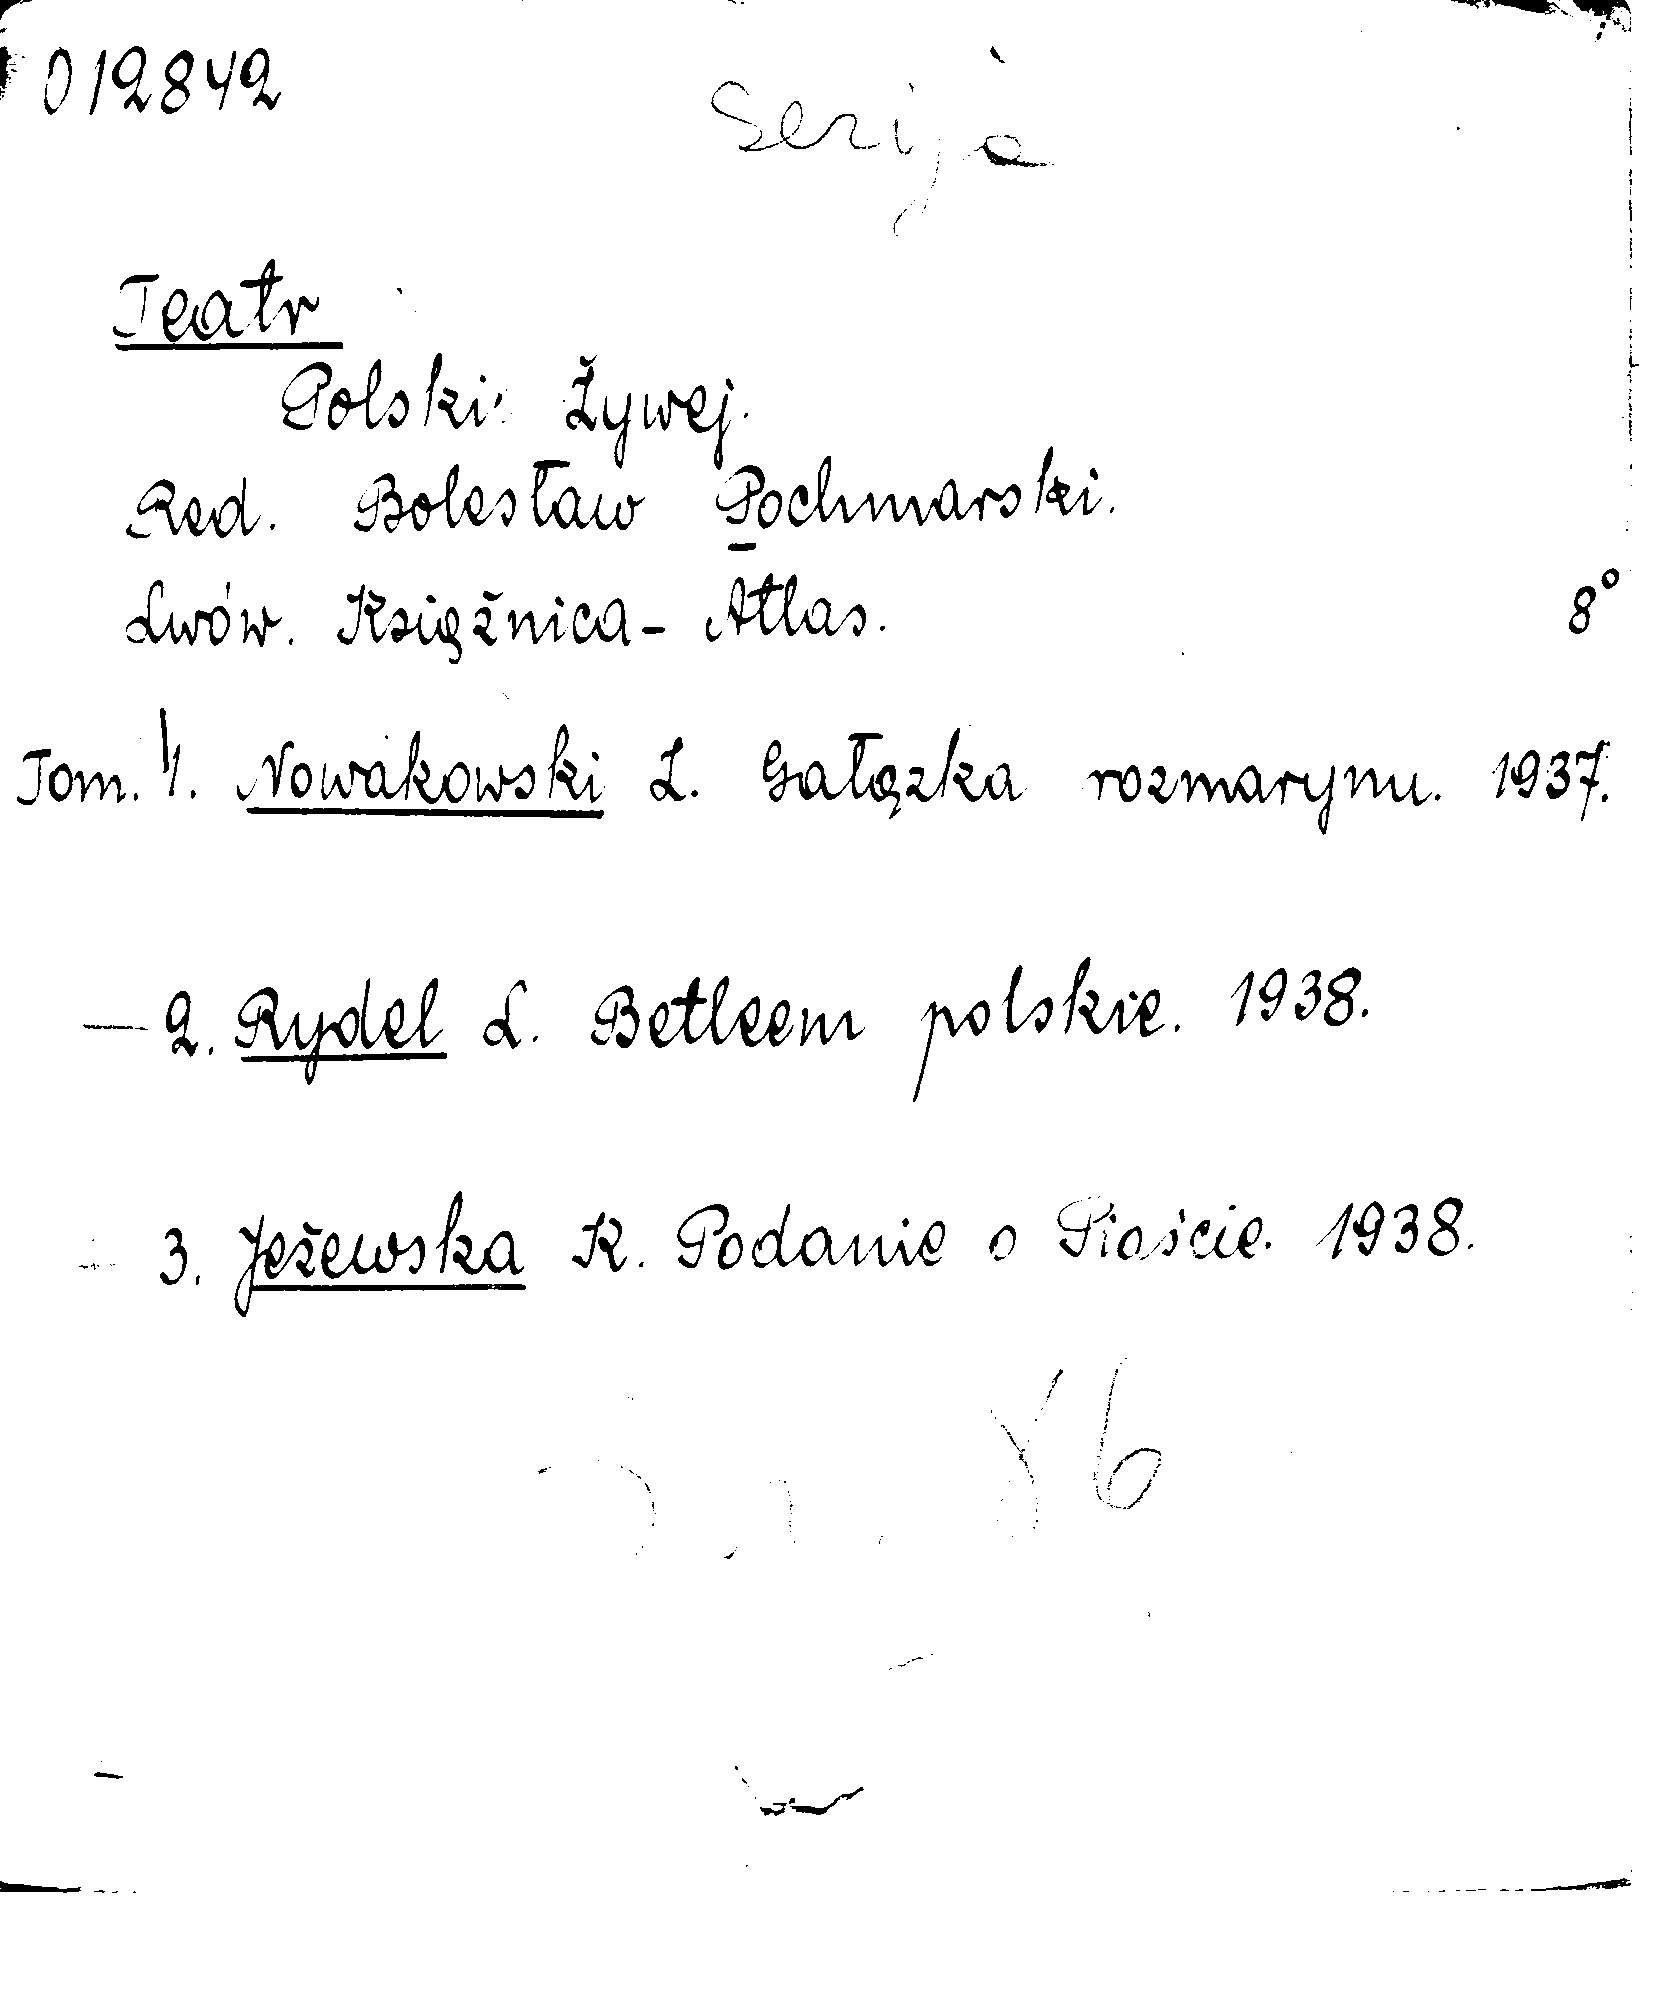 012842
Serija
Teatr
Polski Żywej.
Red. Bolesław Pochmarski.
Lwów. Książnica-Atlas. 8°
Tom. 1. Nowakowski Z. Gałązka rozmarynu. 1937.
— 2. Rydel L. Betleem polskie. 1938.
- 3. Jeżewska K. Podanie o Piaście. 1938.